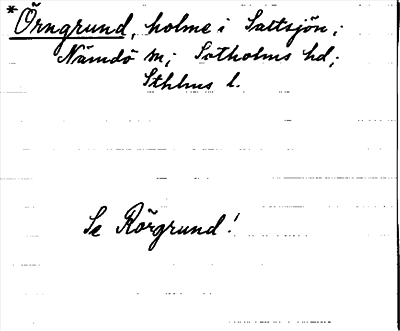 *Örngrund, holme i Saltsjön;
Nämdö m; Sotholms hd;
Sthlms l.
Se Rörgrund!